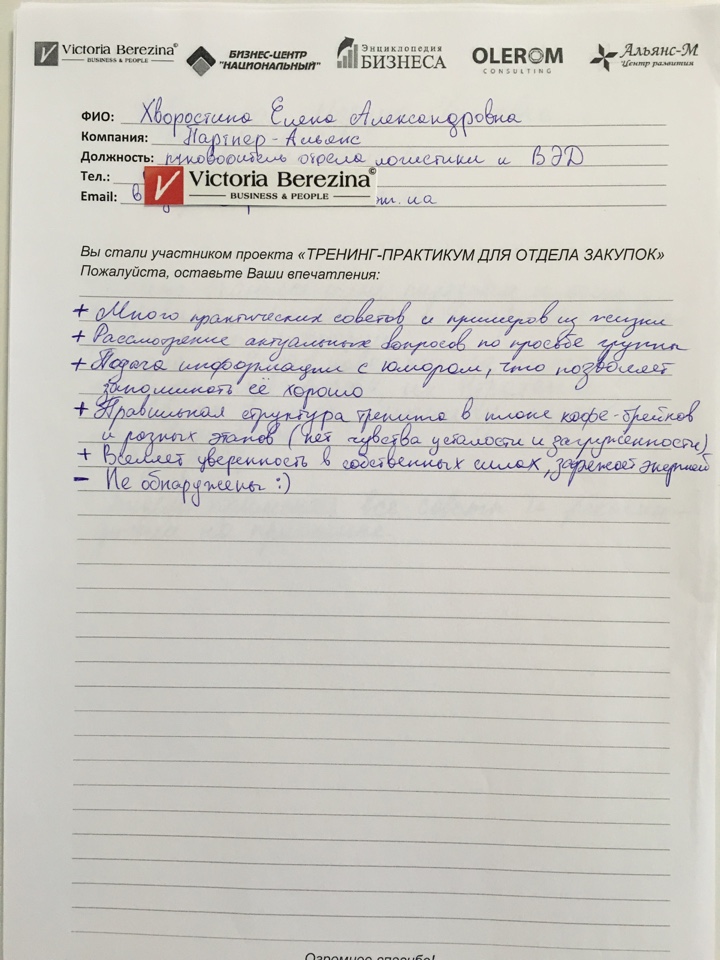 Victoria Berezina© BUSINESS & PEOPLE БИЗНЕС-ЦЕНТР "НАЦИОНАЛЬНЫЙ" Энциклопедия БИЗНЕСА OLEROM CONSULTING Альянс-М Центр развития
ФИО: Хворостина Елена Александровна
Компания: Партнер-Альянс
Должность: руководитель отдела логистики и ВЭД
Тел.:
Victoria Berezina©
BUSINESS & PEOPLE
Email:
Вы стали участником проекта «ТРЕНИНГ-ПРАКТИКУМ ДЛЯ ОТДЕЛА ЗАКУПОК»
Пожалуйста, оставьте Ваши впечатления:
+ Много практических советов и примеров из жизни
+ Рассмотрение актуальных вопросов по просьбе группы
+ Подача информации с юмором, что позволяет
запоминать её хорошо
+ Правильная структура тренинга в плане кофе-брейков
и разных этапов (нет чувства усталости и загруженности)
+ Вселяет уверенность в собственных силах, заряжает энергией
- Не обнаружены :)
Огромное спасибо!